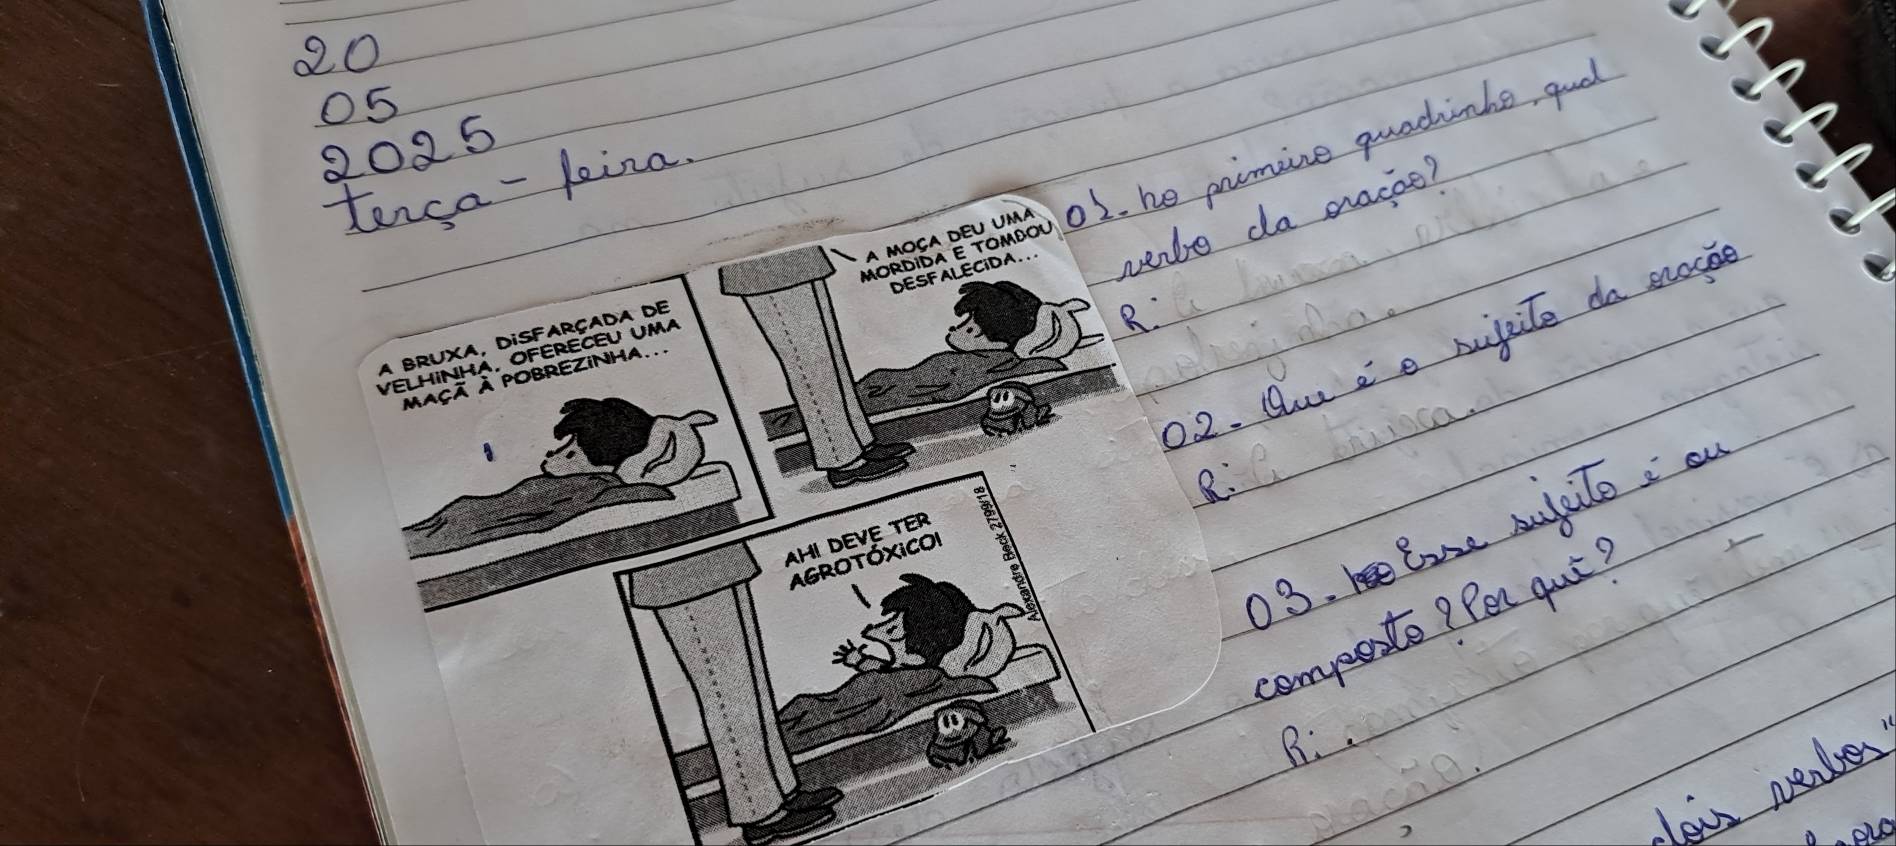 20
05
2025
terça-feira.
A BRUXA, DISFARÇADA DE
VELHINHA, OFERECEU UMA
MAÇÃ À POBREZINHA...
A MOÇA DEU UMA
MORDIDA E TOMBOU
DESFALECIDA...
AH! DEVE TER
AGROTÓXICO!
Alexandre Beck 2799/18
01. no primeiro quadrinho, qual
verbo da oração?
R:
02. Que é o sujeito da oração
R:
03. Esse sujeito é ou
composto? Por quê?
R:.
dois verbos"